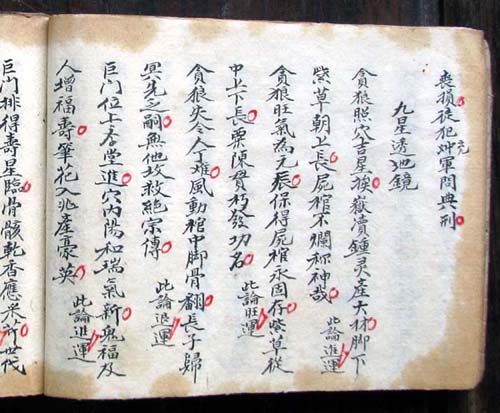 喪損徒犯冲軍問典刑
九星透地鏡
貪狼照穴吉星強嶽瀆鍾灵產大材脚下
紫草朝上長屍棺不爛称神哉 此論進運
貪狼旺氣為元辰保得屍棺永固存紫草從
中上下長粟陳貫朽發功名 此論旺運
貪狼失令人丁难風動棺中脚骨翻長子歸
興先乏嗣無他坟救絕宗傳 此論退運
巨门位上堂進穴內陽和瑞氣新鬼福及
人增福壽筆花入兆產豪英 此論進運
巨门排得壽星臨骨骸乾香應采新世代